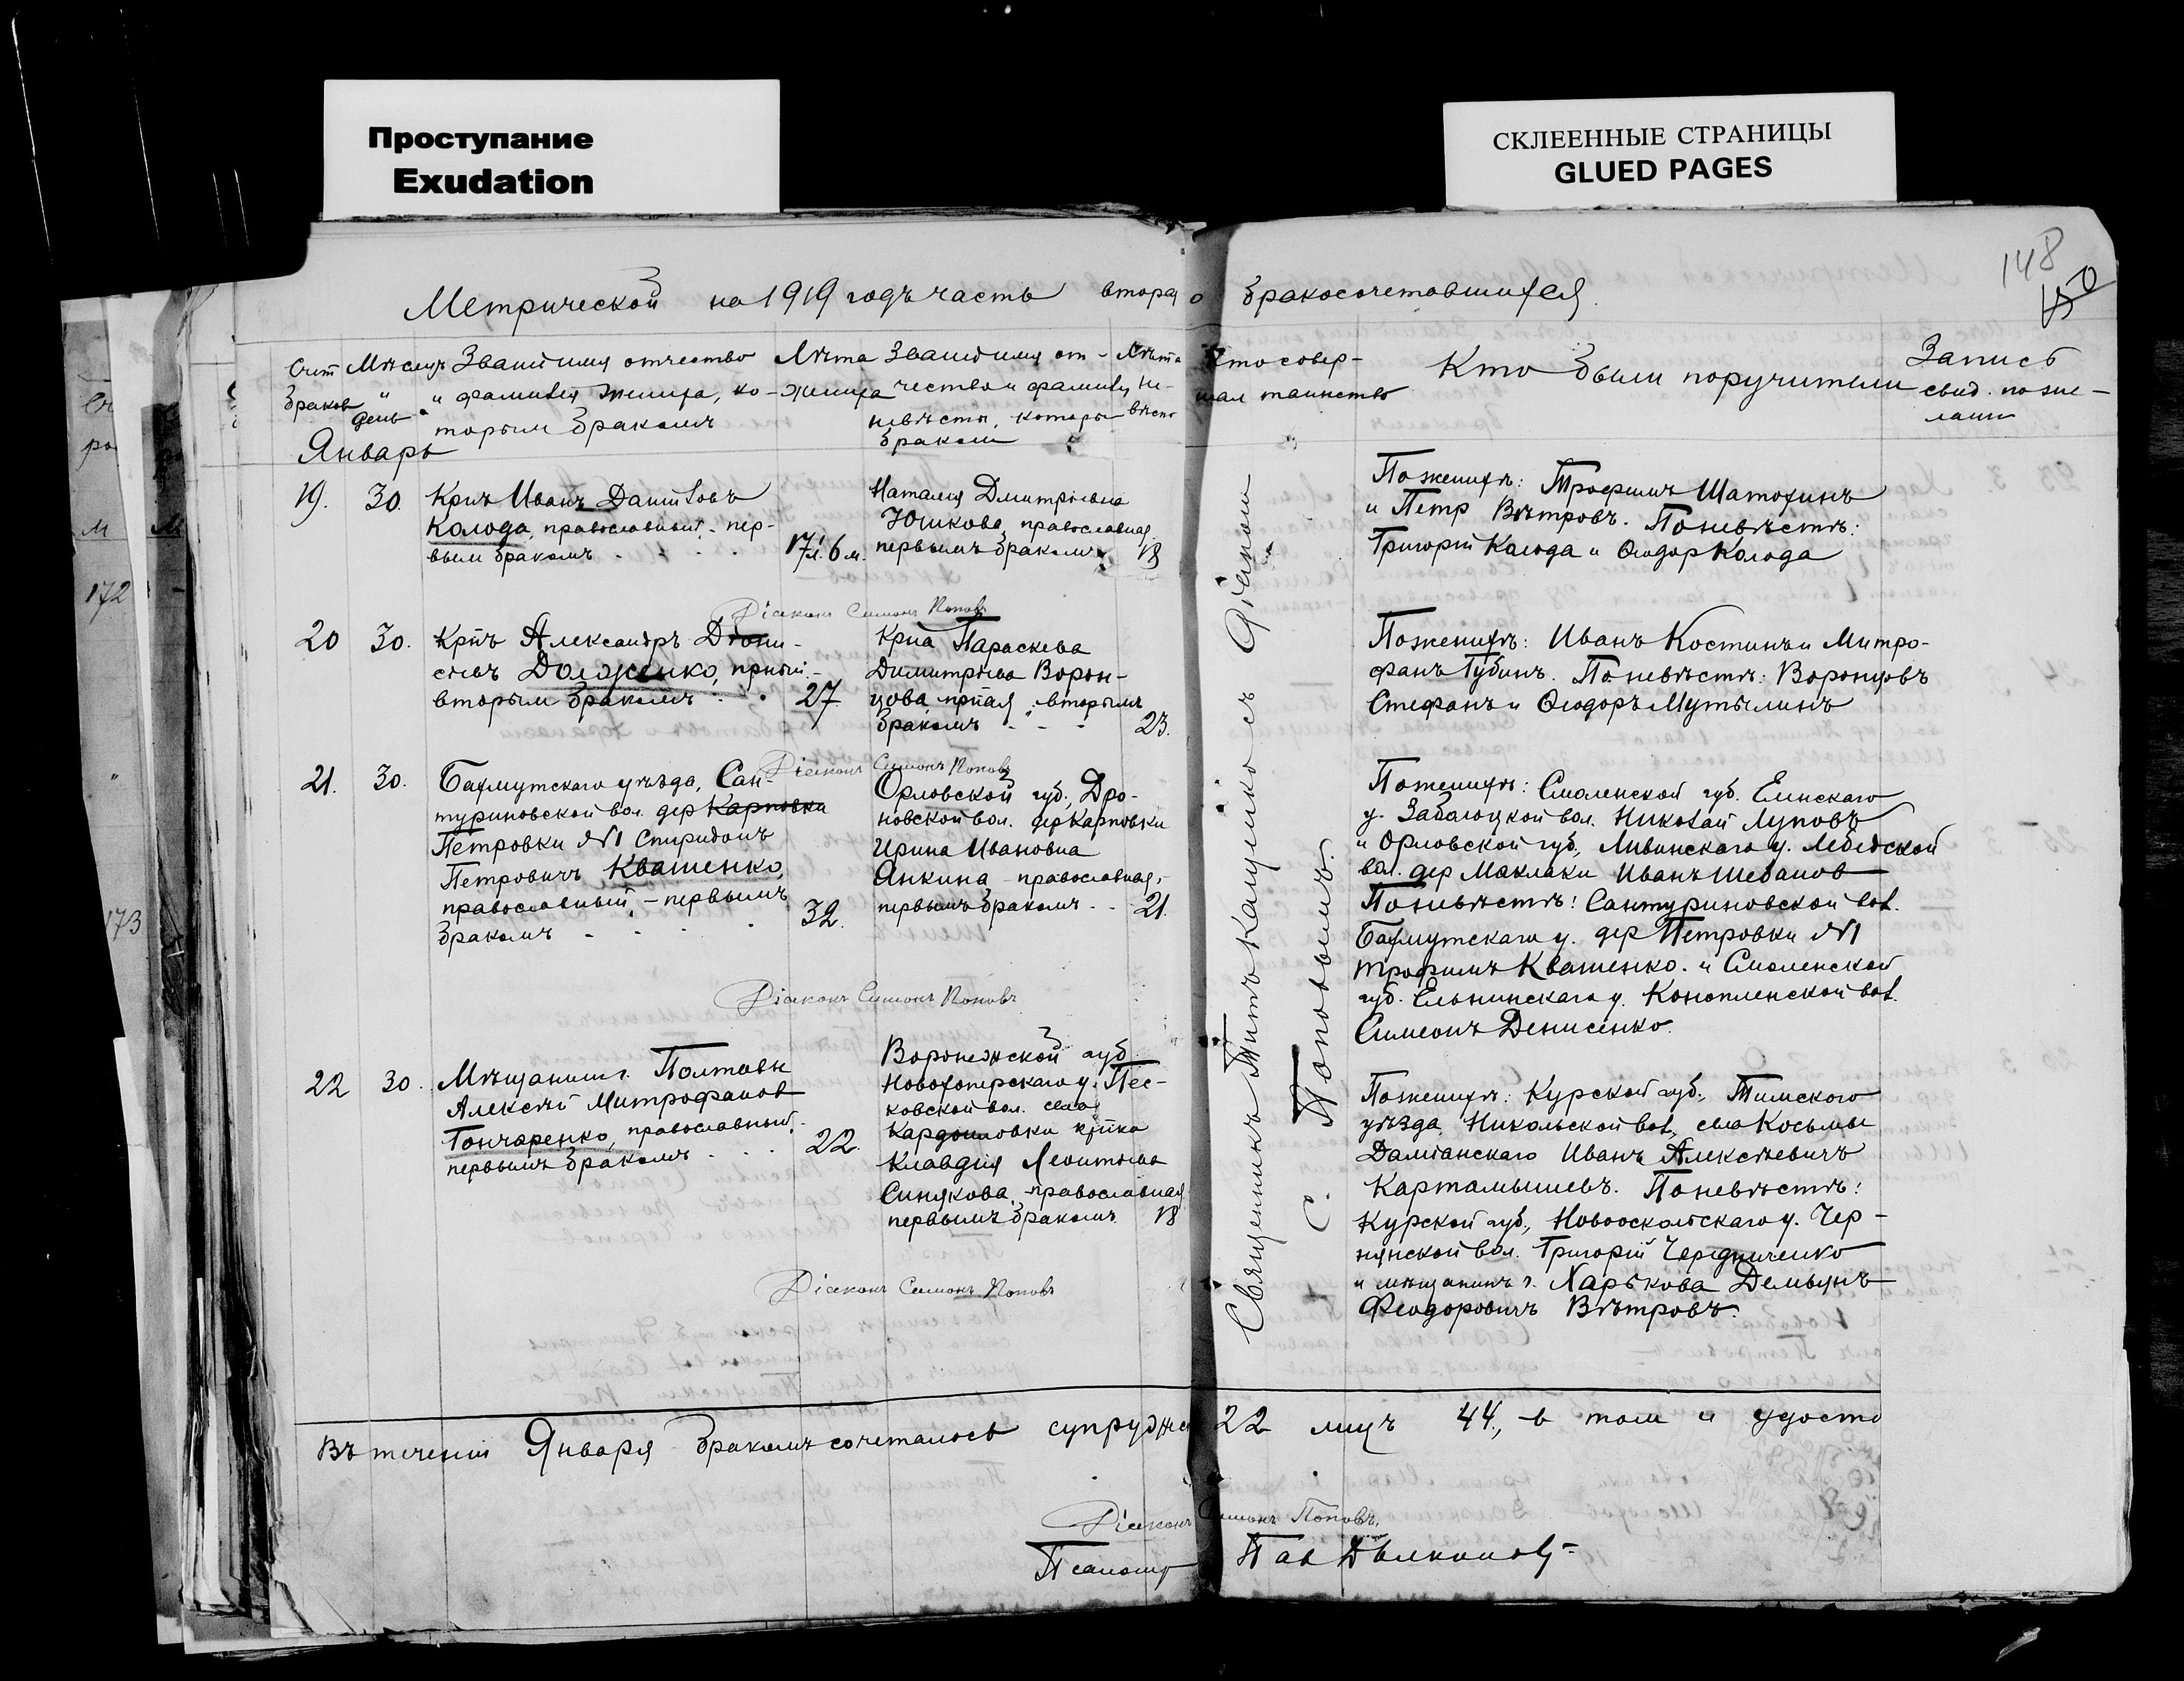 Проступание
Exudation
СКЛЕЕННЫЕ СТРАНИЦЫ
GLUED PAGES
148
Метрической на 1919 годъ часть вторая о бракосочетавшихся
Счет браков
Мѣсяцъ и день
Званіе имя отчество
и фамилія жениха, ко-
торым бракомъ
Лѣта
жениха
Званіе имя от-
чество и фамилія не-
вѣсты, которым
браком
Лѣта
невѣсты
Кто совер-
шал таинство
Кто были поручители
Запись
свид. по же-
лани
Январь
19. 30.
Крнъ Иванъ Даниловъ
Колода, православный, - пер-
вым бракомъ
17 л. 6 м.
Наталия Дмитріевна
Юшкова, православная
первымъ бракомъ
18
По женихѣ: Трофимъ Шатохинъ
и Петр Вѣтровъ. По невѣстѣ:
Григорій Колода и Ѳеодор Колода
Діаконъ Симонъ Поповъ
20 30.
Крнъ Александръ Діони-
сіевъ Долженко, прный. -
вторым бракомъ
27
Крна Параскева
Димитріева Ворон-
цова, прная, вторымъ
бракомъ
23.
По женихѣ: Иванъ Костинъ и Митро-
фанъ Губинъ. По невѣстѣ: Воронцовъ
Стефанъ и Ѳеодоръ Мутылинъ
Діаконъ Симонъ Поповъ
21. 30.
Бахмутскаго уѣзда, Сан-
туриновской вол. дер Карповки
Петровки №1 Спиридонъ
Петровичъ Квашенко,
православный - первымъ
бракомъ
32.
Орловской губ., Дро-
новской вол. дер Карповки
Ирина Ивановна
Янкина - православная,
первымъ бракомъ
21.
По женихѣ: Смоленской губ. Елинскаго
у. Заболоцкой вол. Николай Луповъ
и Орловской губ., Ливинскаго у. Лебедской
вол. дер Маклаки Иванъ Шебанов
По невѣстѣ: Сантуриновской вол.
Бахмутскаго у. дер Петровки №1
Трофимъ Квашенко. и Смоленской
губ. Ельнинскаго у. Коноплинской вол.
Симеонъ Денисенко.
Діаконъ Симонъ Поповъ
22 30.
Мѣщанинъ г. Полтавы
Алексѣй Митрофанов
Гончаренко, православный, -
первымъ бракомъ
22.
Воронежской губ
Новохоперскаго у. Пес-
ковской вол. села
Кардоиловки крнка
Клавдія Леонтьева
Синякова, - православная
первымъ бракомъ
18
По женихѣ: Курской губ., Тимского
уѣзда, Никольской вол., села Косьмы
Даміанскаго Иванъ Алексѣевичъ
Картамышевъ. По невѣстѣ:
Курской губ., Новооскольскаго у. Чер-
нянской вол. Григорій Чередниченко
и мѣщанинъ г. Харькова Демьянъ
Феодоровичъ Вѣтровъ.
Діаконъ Симонъ Поповъ
Священникъ Титъ Кащенко съ Діаконом
С. Поповымъ.
Въ теченіи Января бракомъ сочеталось супруже 22 лицъ 44, - в том и удосто
Діаконъ Симонъ Поповъ.
Псаломщ Пав